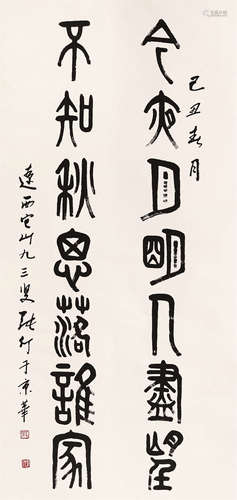 己丑春月
今夜月明人盡望
不知秋思落誰家
遼西它山九三叟張仃于京華